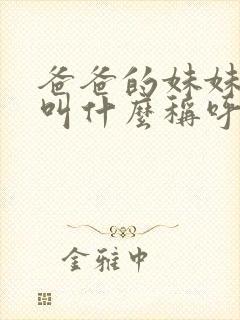 爸爸的妹妹
叫什麼稱呼
金雅中